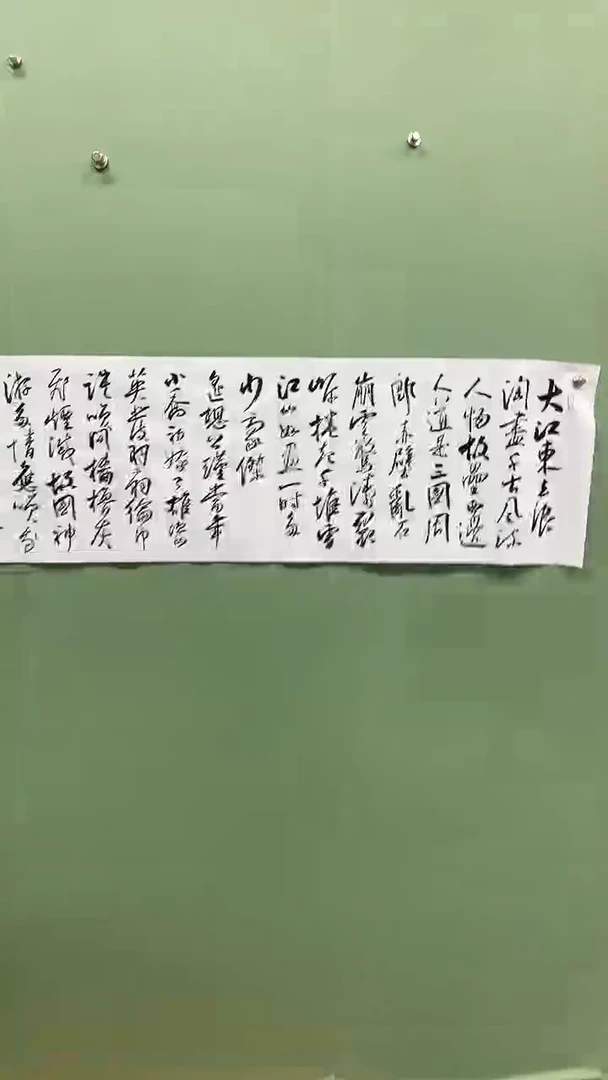 大江東去浪
淘盡千古風流
人物故壘西邊
人道是三國周
郎赤壁亂石
崩雲驚濤裂
岸捲起千堆雪
江山如畫一時多
少豪傑
遙想公瑾當年
小喬初嫁了雄姿
英發羽扇綸巾
談笑間檣櫓灰
飛煙滅故國神
游多情應笑